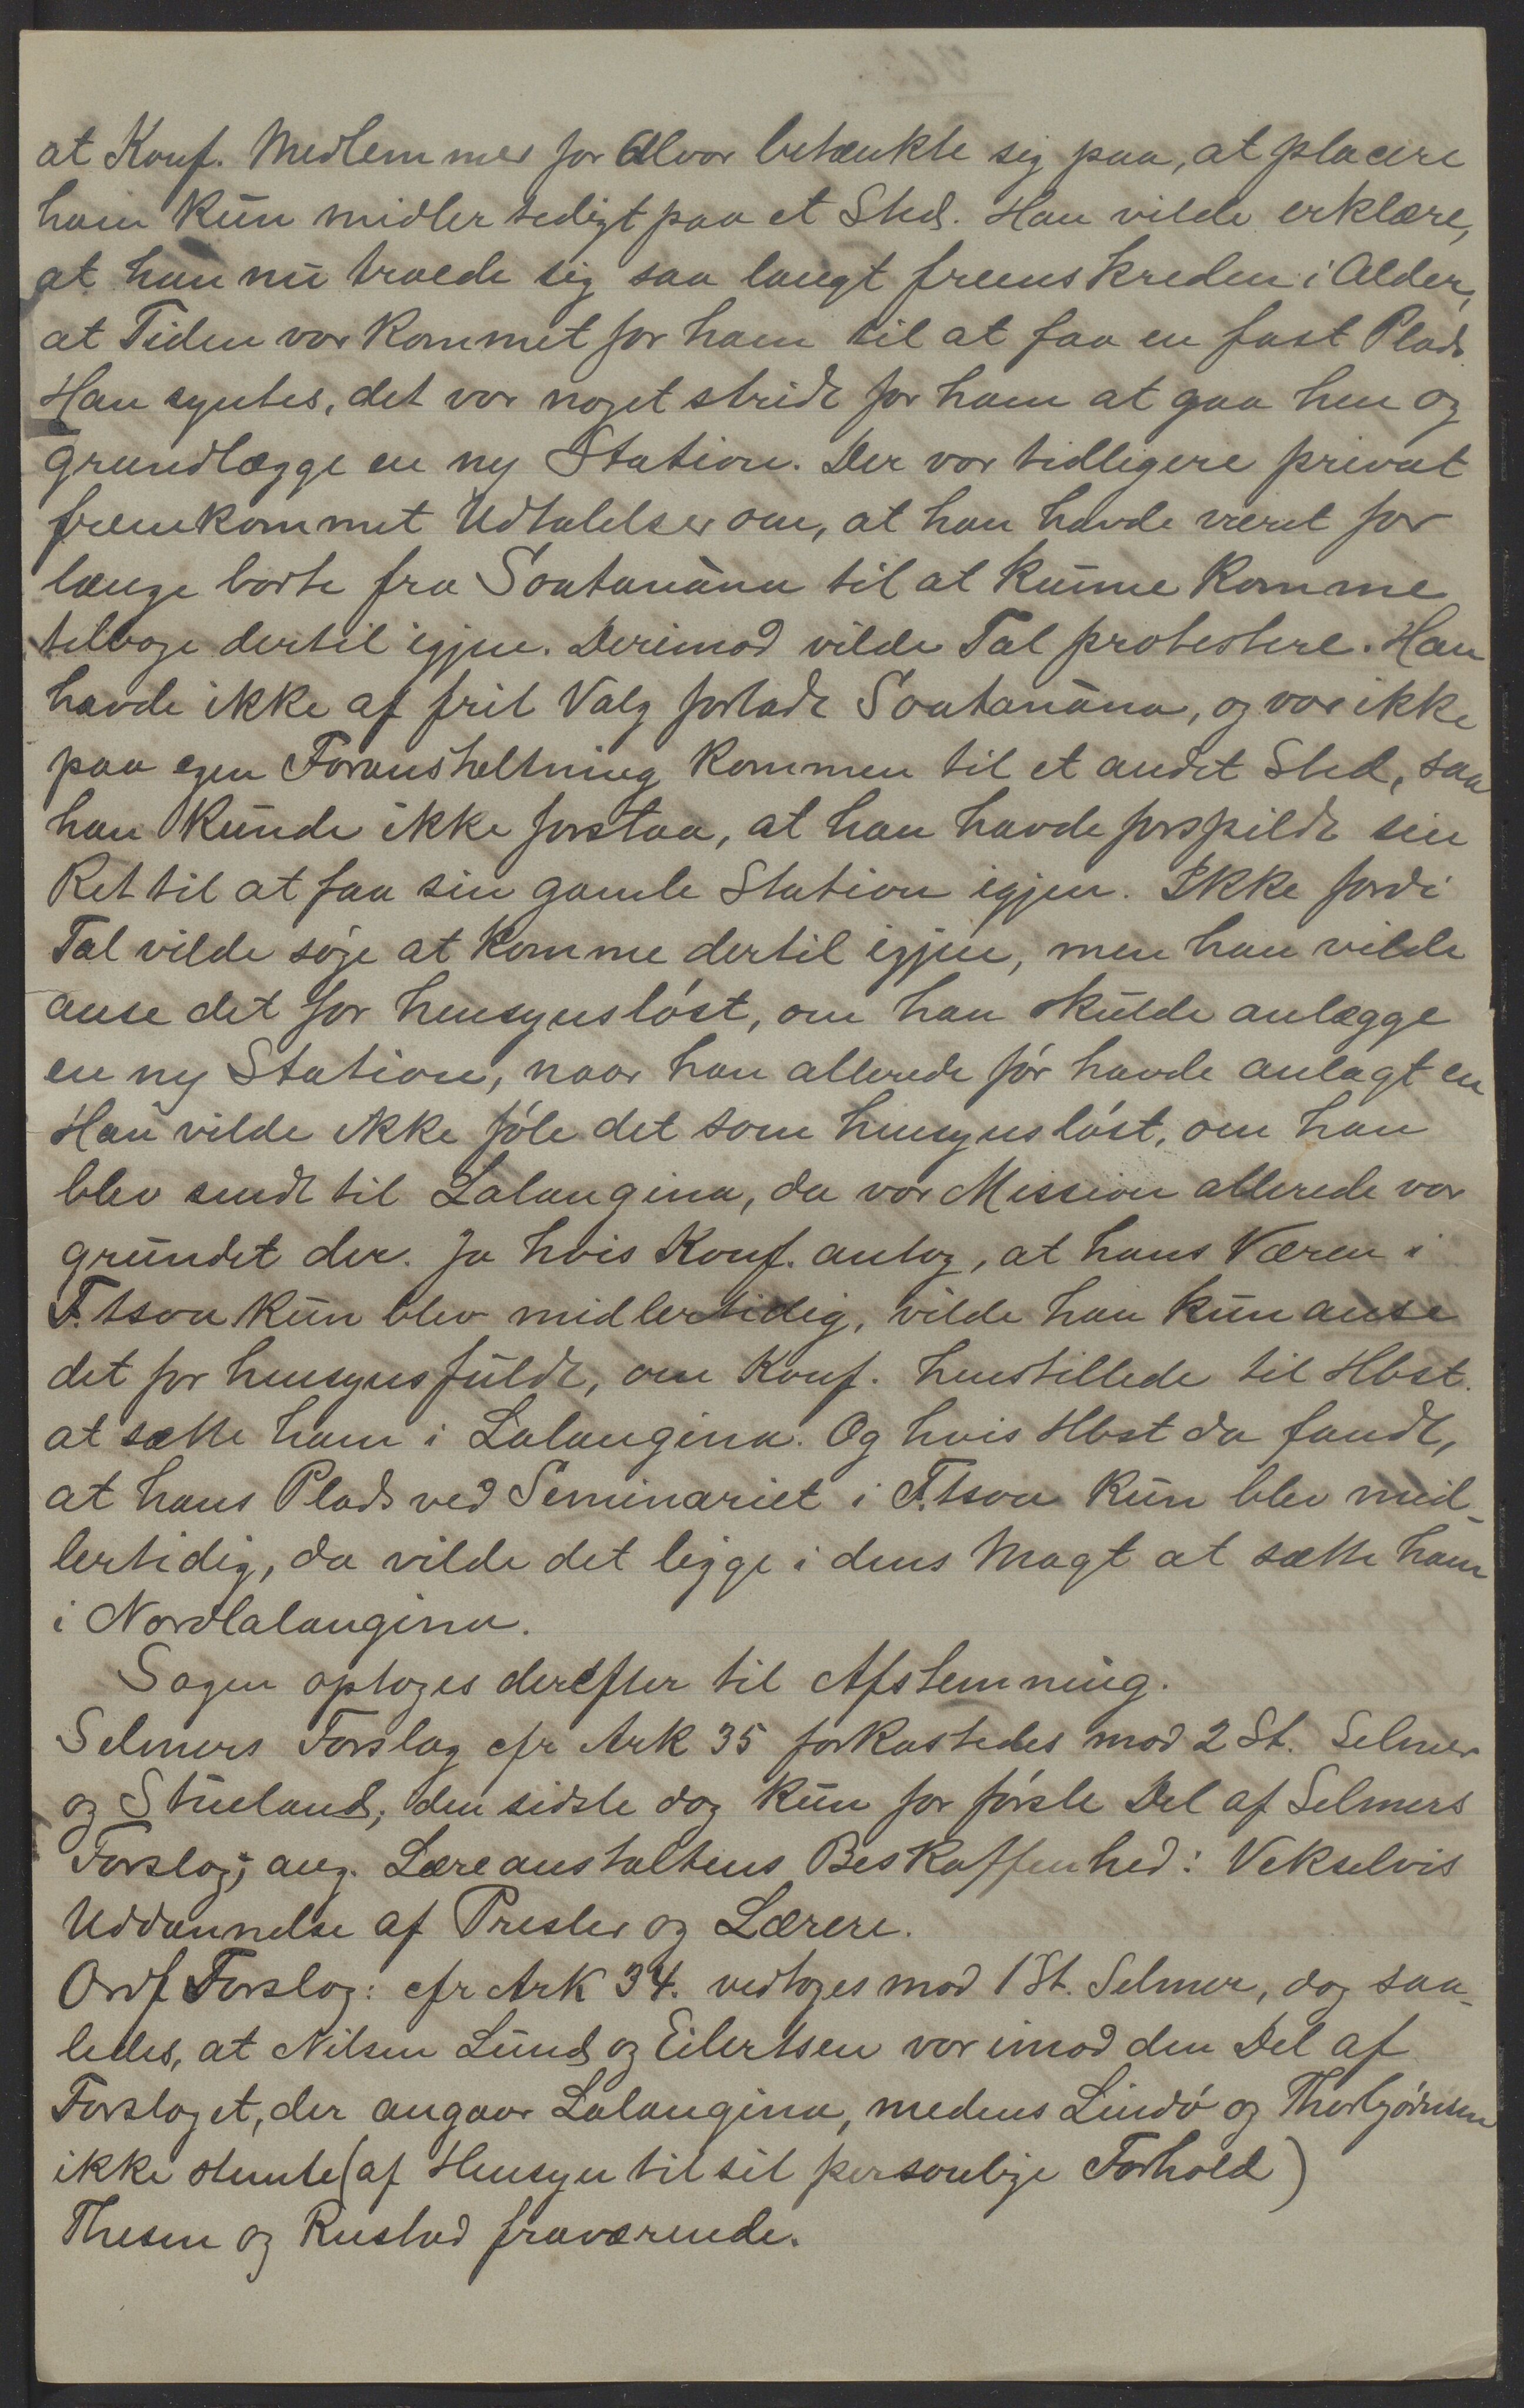 at Konf. Medlemmer for Alvor betænkte sig paa, at placere
ham kun midlertidigt paa et Sted. Han vilde erklære,
at han nu troede sig saa langt fremskreden i Alder,
at Tiden var kommet for ham til at faa en fast Plads
Han syntes, det var noget stridt for ham at gaa hen og
grundlægge en ny Station. Der var tidligere privat
fremkommet Udtalelser om, at han havde været for
længe borte fra Soatanàna til at kunne komme
tilbage dertil igjen. Derimod vilde Tal protestere. Han
havde ikke af frit Valg forladt Soatanàna, og var ikke
paa egen Foranstaltning kommen til et andet Sted, saa
han kunde ikke forstaa, at han havde forspildt sin
Ret til at faa sin gamle Station igjen. Ikke fordi
Tal vilde søge at komme dertil igjen, men han vilde
anse det for hensynsløst, om han skulde anlægge
en ny Station, naar han allerede før havde anlagt en
Han vilde ikke føle det som hensynsløst, om han
blev sendt til Lalangina, da vor Mission allerede var
grundet der. Ja hvis Konf. antog, at hans Væren i
F.tsoa kun blev midlertidig, vilde han kun anse
det for hensynsfuldt, om Konf. henstillede til Hbst.
at sætte ham i Lalangina. Og hvis Hbst da fandt,
at hans Plads ved Seminariet i F.tsoa kun blev mid-
lertidig, da vilde det ligge i dens Magt at sætte ham
i Nordlalangina.
Sagen optoges derefter til Afstemning.
Selmers Forslag cfr Ark 35 forkastedes mod 2 St. Selmer
og Stueland; den sidste dog kun for første Del af Selmers
Forslag; ang. Læreanstaltens Beskaffenhed: Vekselvis
Uddannelse af Prester og Lærere.
Ordf Forslag: cfr Ark 34. vedtoges mod 1 St. Selmer, dog saa-
ledes, at Nilsen Lund og Eilertsen var imod den Del af
Forslaget, der angaar Lalangina, medens Lindø og Thorbjørnsen
ikke stemte (af Hensyn til sit personlige Forhold)
Thesen og Rustad fraværende.